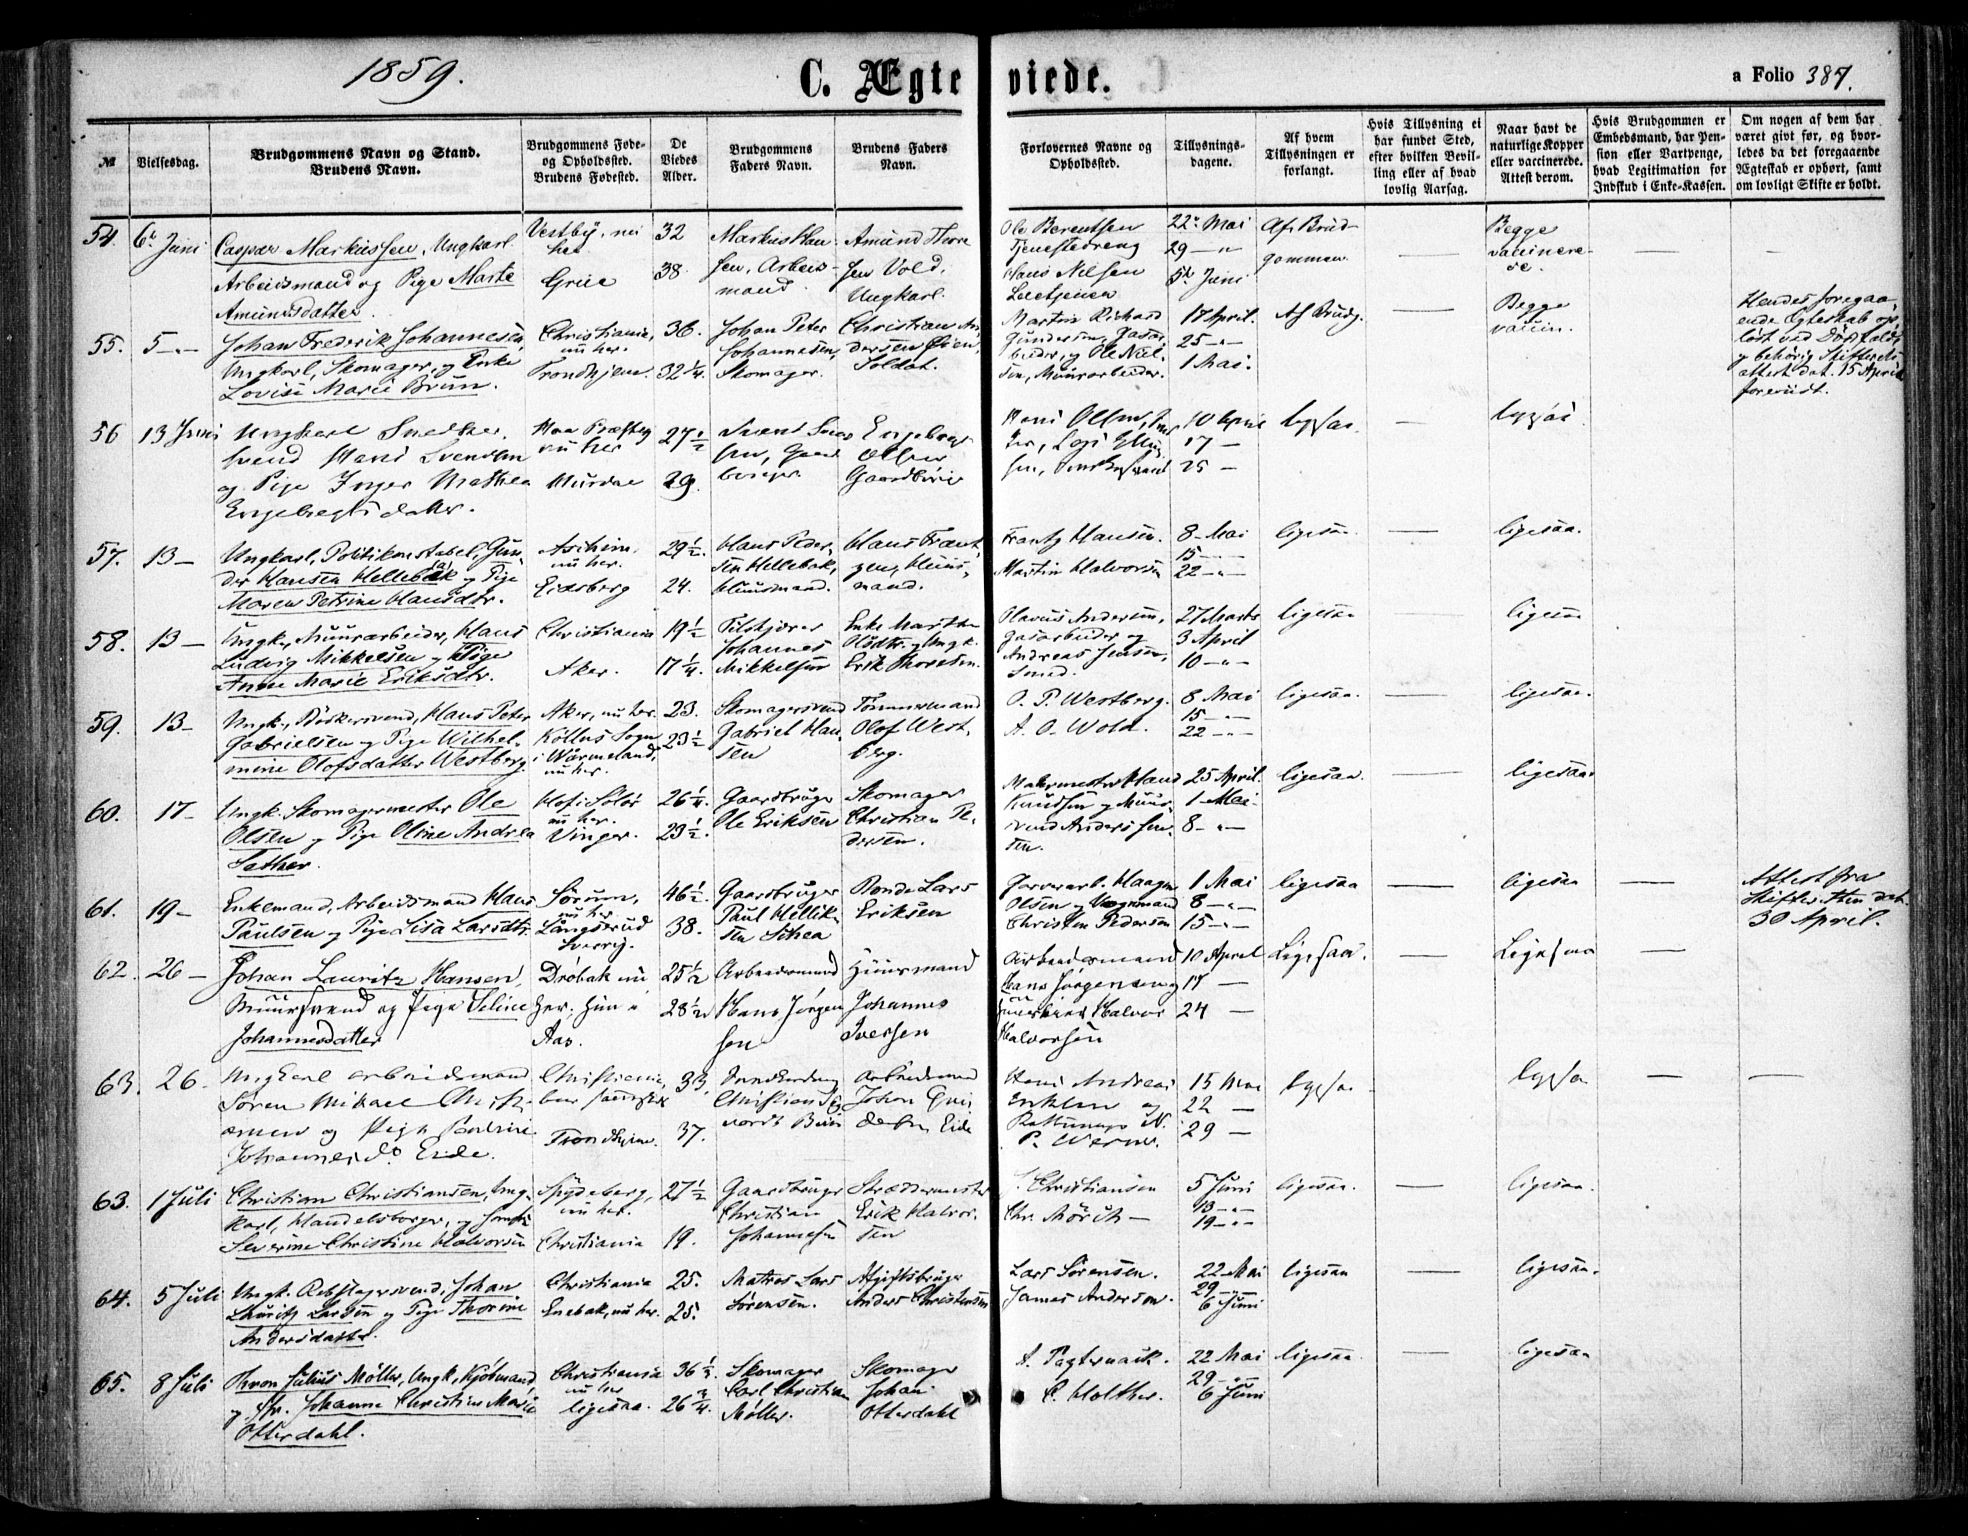 1859.
C. Ægte viede.
a Folio 387.
№
Vielsesdag.
Brudgommens Navn og Stand.
Brudens Navn.
Brudgommens Føde-
og Opholdssted.
Brudens Fødested.
De
Viedes
Alder.
Brudgommens
Faders Navn.
Brudens Faders
Navn.
Forlovernes Navne og
Opholdssted.
Tillysnings-
dagene.
Af hvem
Tillysningen er
forlangt.
Hvis Tillysning ei
har fundet Sted,
efter hvilken Bevil-
ling eller af hvad
lovlig Aarsag.
Naar havt de
naturlige Kopper
eller vaccinerede.
Attest derom.
Hvis Brudgommen er
Embedsmand, har Pen-
sion eller Vartpenge,
hvad Legitimation for
Indskud i Enke-Kassen.
Om nogen af dem har
været givt før, og hvor-
ledes da det foregaaende
Ægteskab er ophørt, samt
om lovligt Skifte er holdt.
54. 6te Juni
Caspar Markussen, Ungkarl
Arbeidsmand og Pige Marte
Amundsdatter.
Vestby, nu
her
Grue
32
38.
Markus Han
sen, Arbeids-
mand
Amund Thore
sen Vold,
Ungkarl.
Ole Berentsen
Tjenestedreng
Hans Nilsen
22de Mai
29 - "
5te Juni
Af Brud-
gommen
Begge
vaccinere-
de.
55. 5 - " -
Johan Frederik Johannesen
Ungkarl, Skomager, og Enke
Lovise Marie Brun.
Christiania,
nu her.
Trondhjem.
36.
32 1/4
Johan Peter
Johannesen,
Skomager.
Christian An
dersen
Soldat.
Martin Richard
Gundersen, Gasar
beider, og Ole Niel-
sen, Muurarbeider.
17 April.
25 - " -
1 Mai.
Af Brudg.
Begge
vaccin.
Hendes foregaa
ende Ægteskab op
løst ved Dødsfald,
g behørig Skifte
attest dat. 15 April
foreviist.
56 13 Juni
Ungkarl Snedker
svend Hans Svendsen
og Pige Inger Mathea
Engebregtsdatter.
nu her
Hurdal
27 1/2
29.
Svend
sen, Gaard
bruger.
Engebregt
Olsen
Gaardbruger
Hans Olsen,
10 April
17 -
25 -
ligesaa
ligesaa
57. 13 -
Ungkarl, Politikonstabel, Gun
der Hansen Hellebæk og Pige
Maren Petrine Hansdtr.
Aschim,
nu her.
Eidsberg
29 1/2.
24.
Hans Peder-
sen Hellebæk,
Huusmand.
Hans Frant
zen, Huus-
mand.
Frantz Hansen.
Martin Halvorsen
8 - Mai
15 - "
22 - "
ligesaa
ligesaa.
58. 13 -
Ungk., Muurarbeider, Hans
Ludvig Mikkelsen og Pige
Anne Marie Eriksdtr.
Christiania
Aker.
19 1/2
17 1/4.
Johannes
Mikkelsen
Enke Marthe
Olsdtr. og Ungk.
Erik Thoresen.
Olavus Andersen,
Gasarbeider og
Andreas Jensen,
Smed.
27 Marts
3 April
10 - " -
ligesaa
ligesaa
59. 13 -
Ungk., Bødkersvend, Hans Peter
Gabrielsen og Pige Wilhel-
mine Olofsdatter Westberg.
Aker, nu her.
Köllns Sogn
i Wärmeland,
nu her.
23.
23 1/2
Skomagersvend
Gabriel Han
sen
Tømmermand
Olof West-
berg.
O. P. Westberg.
A. O. Wold.
8 Mai
15 - " -
22 - " -
ligesaa.
ligesaa.
60. 17 -
Ungk. Skomagermester Ole
Olsen og Pige Oline Andrea
Sæther.
Hof i Solør
nu her.
Vinger.
26 1/4.
23 1/2.
Gaardbruger
Ole Eriksen
Skomager
Christian Pe-
dersen.
Knudsen og Muur-
svend Anders Jen-
sen.
25 April.
1 - Mai
8 - " -
ligesaa.
ligesaa
61. 19 -
Enkemand, Arbeidsmand Hans
Paulsen og Pige Lisa Larsdtr.
Sørum,
nu her.
Långserud
Sverrig.
46 1/2
38.
Gaardbruger
Paul Hellik-
sen
Bonde Lars
Eriksen
Haagen
Olsen og Vognmand
Christen Pedersen
1 Mai
8 - " -
15 - " -
ligesaa
ligesaa
Attest fra
Skifteretten dat.
30 April.
62. 26 -
Johan Lauritz Hansen,
Muursvend og Pige Seline
Johannesdatter
Drøbak nu
her; hun i
Aas.
25 1/2
28 1/2
Arbeidsmand
Hans Jørgen
sen
Huusmand
Johannes
Iversen
Arbeidsmand
Hans Jørgensen og
Halvor
Halvorsen
10 April
17 -
24 -
Ligesaa.
Ligesaa
63. 26.
Ungkarl arbeidsmand
Søren Mikael Christi
ansen og Pige Pauline
Johannesd. Eide.
Christiania,
Trondhjem.
33.
37.
Christian
Arbeidsmand
Johan
Eide
Hans Andreas
Eriksen og
15 Mai
22 -
29 -
ligesaa
ligesaa
63. 1 Juli
Christian Christiansen, Ung-
karl, Handelsborger, og Jomfr.
Severine Christine Halvorsen
Spydeberg,
nu her.
Christiania
27 1/2
19.
Gaardbruger
Christian
Johannesen
Skræddermester
Erik Halvor-
sen
Christiansen
Chr. Mörch -
5 Juni
13 - " -
19 - " -
ligesaa.
ligesaa.
64. 5 Juli
Ungk. Rebslagersvend, Johan
Lauritz Larsen og Pige Thorine
Andersdatter.
Christiania
Enebak, nu her.
25.
25.
Matros Lars
Sørensen.
Afgiftsbruger
Anders Christensen
Lars Sørensen.
James Anderson.
22 Mai
29 - " -
6 Juni
ligesaa
ligesaa.
65. 8 Juli
Thron Julius Møller, Ungk., Kjøbmand,
og Jfr. Johanne Christine Marie
Otterdahl.
Christiania
nu her
ligesaa.
36 1/2.
26 3/4.
Skomager
Carl Christian
Møller.
Skomager
Johan
Otterdahl
C. Holther.
22 Mai
29 - " -
6 Juni
ligesaa
ligesaa